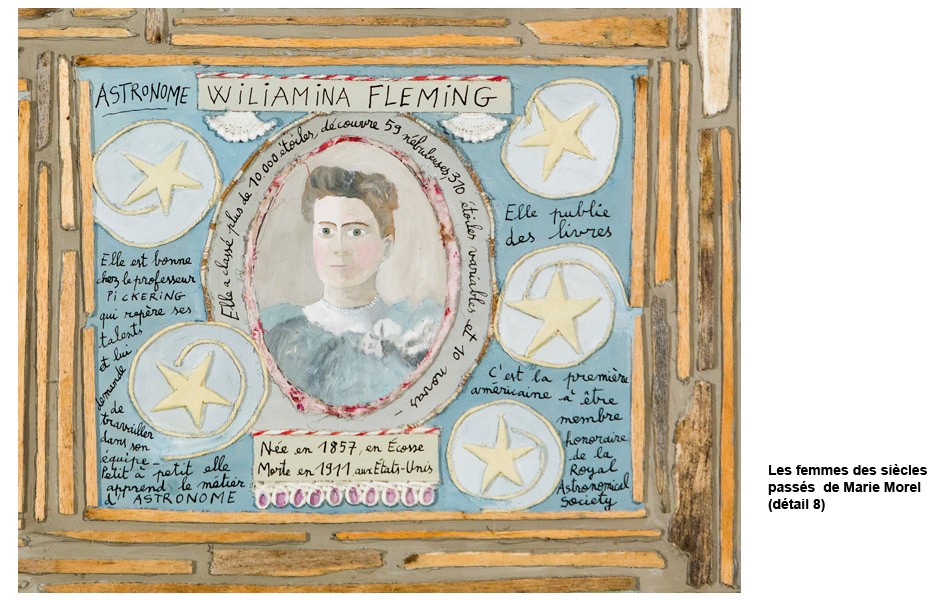 ASTRONOME
WILIAMINA FLEMING
Elle a classé plus de 10 000 étoiles, découvre 59 nébuleuses, 310 étoiles variables et 10 novas -
Elle est bonne
chez le professeur
PICKERING
qui repère ses
talents
et lui
demande
de
travailler
dans son
équipe -
Petit à petit elle
apprend le métier
d'ASTRONOME
Née en 1857, en Écosse
Morte en 1911, aux Etats-Unis
Elle publie
des livres
C'est la première
américaine à être
membre
honoraire
de la
Royal
Astronomical
Society
Les femmes des siècles
passés de Marie Morel
(détail 8)